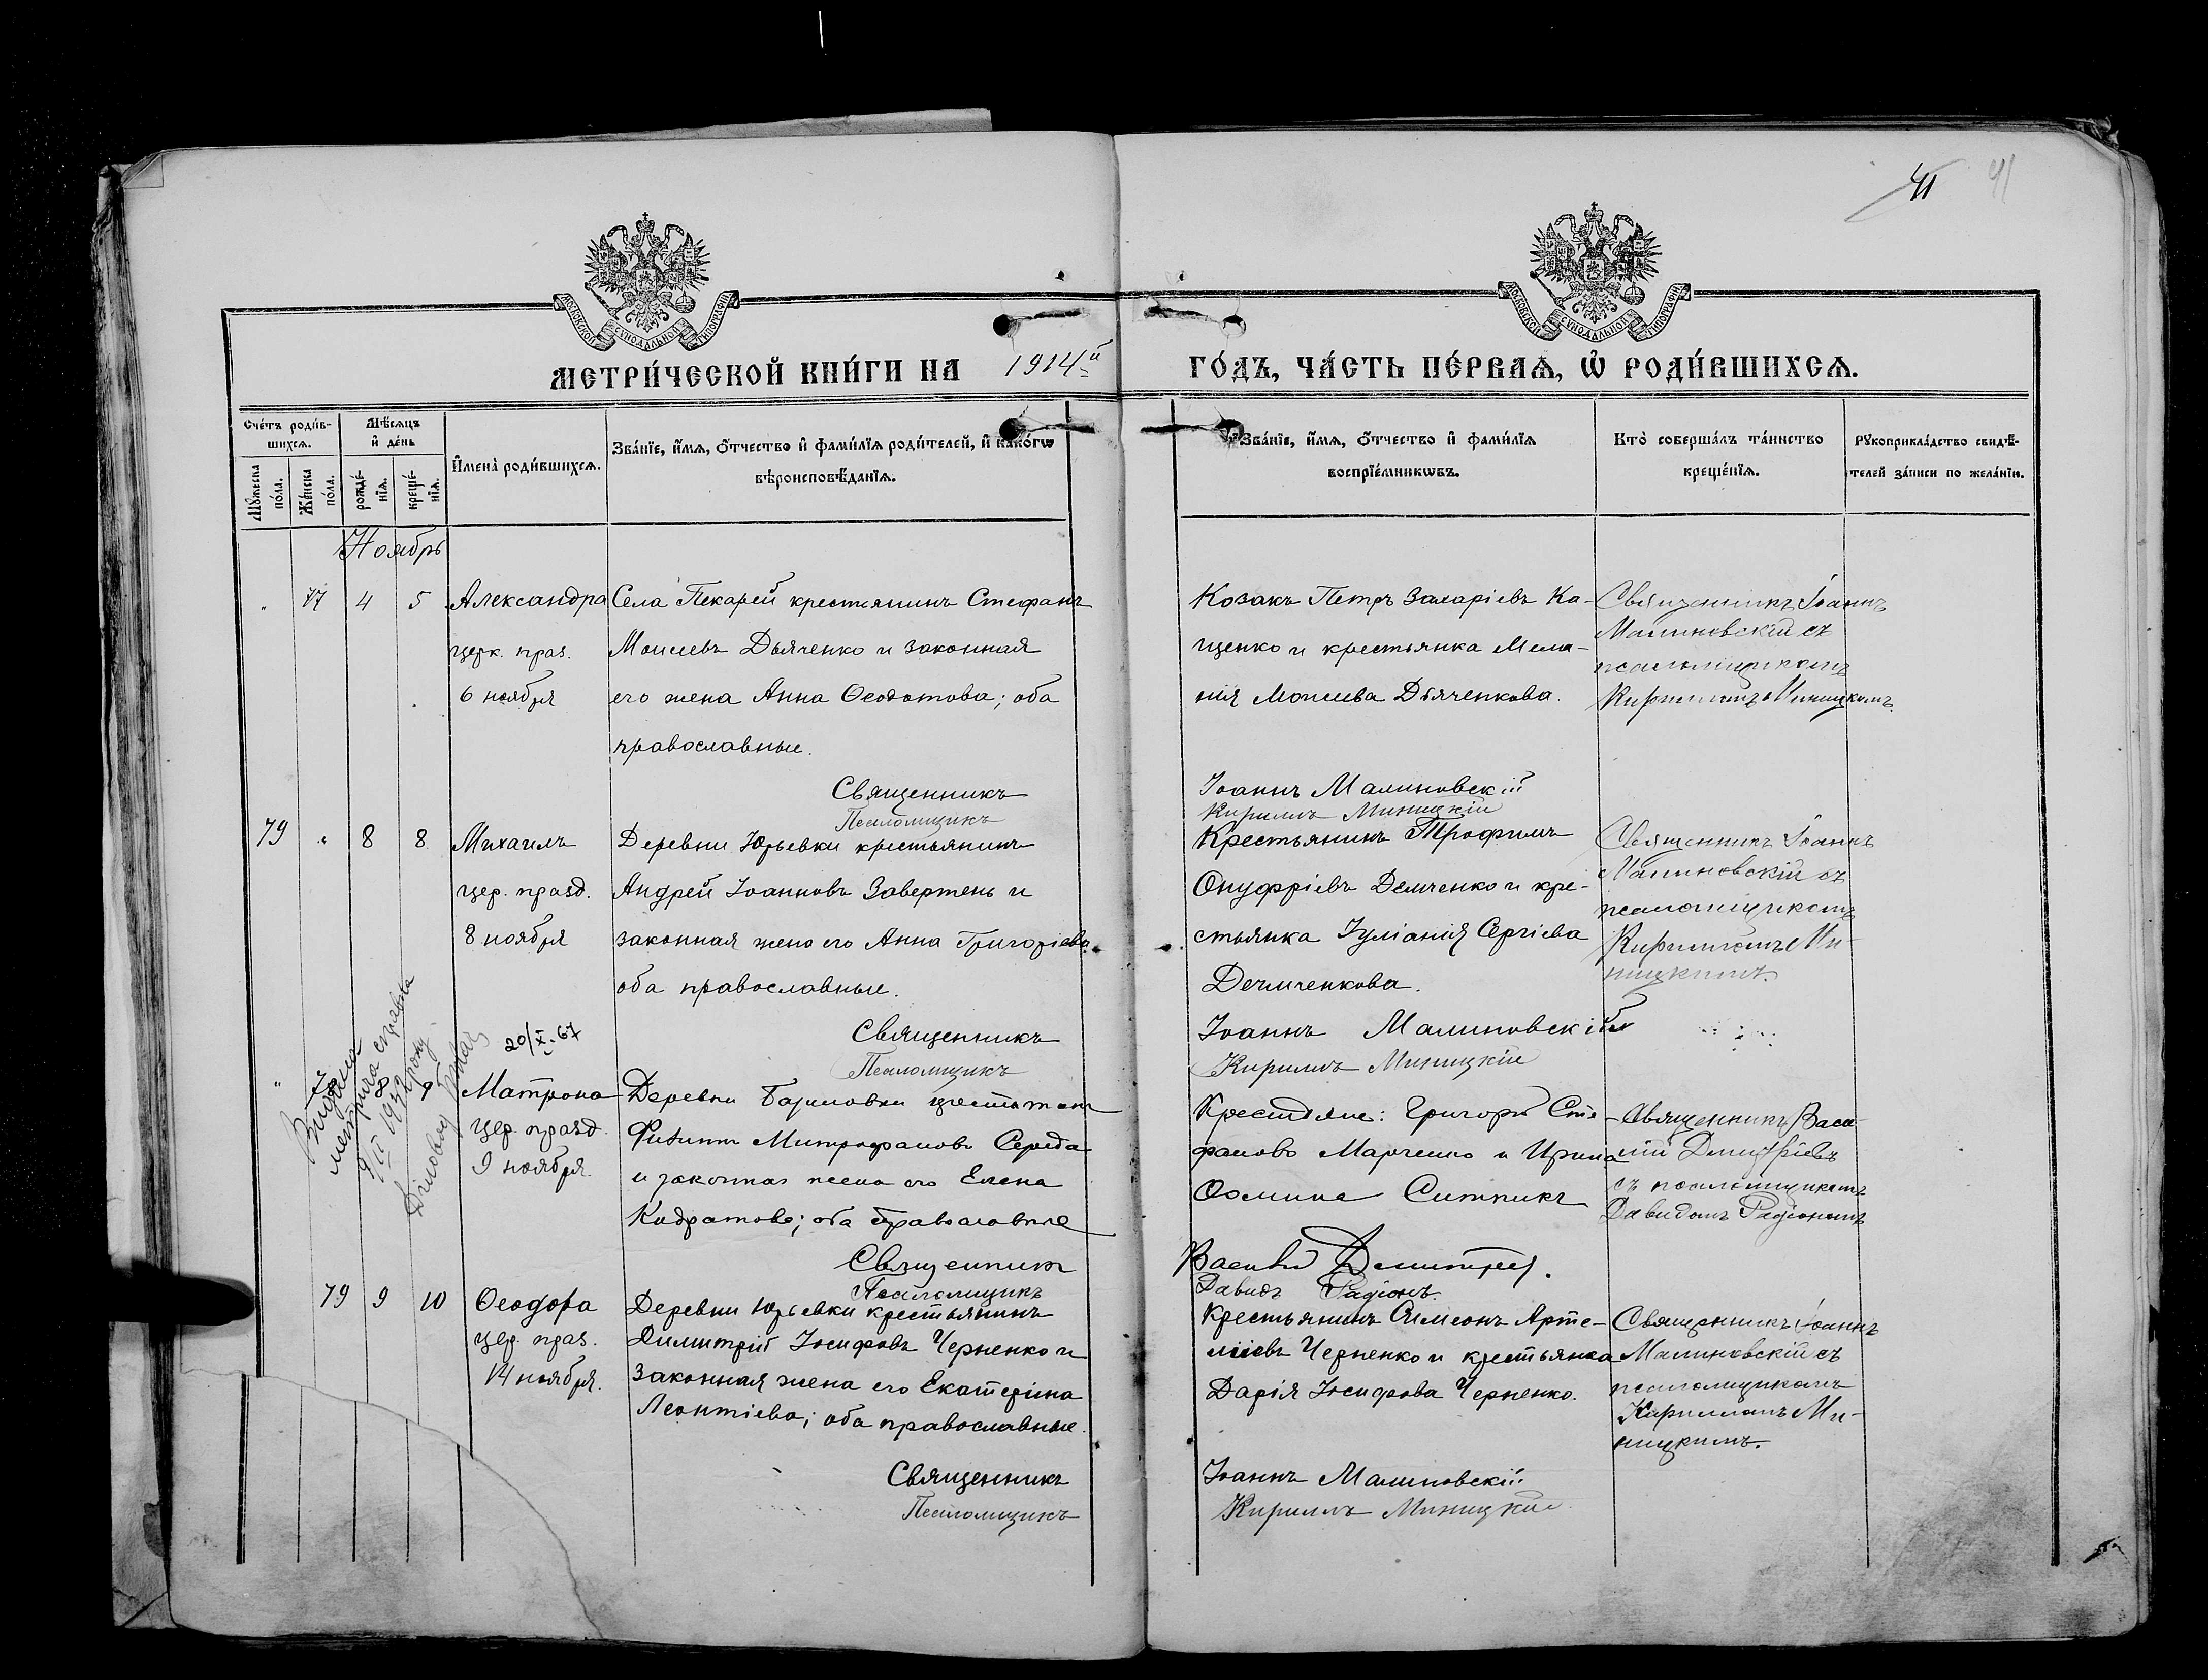 41 41
МОСКОВСКОЙ СѴНОДАЛЬНОЙ ТИПОГРАФІИ
МОСКОВСКОЙ СѴНОДАЛЬНОЙ ТИПОГРАФІИ
МЕТРИ́ЧЕСКОЙ КНИ́ГИ НА 1914й ГО́ДЪ, ЧА́СТЬ ПЕ́РВАѦ, Ѡ҆ РОДИ́ВШИХСѦ.
Сче́тъ роди́вшихсѧ.
Мꙋ́жеска по́ла.
Же́нска по́ла.
Мѣ́сѧцъ и҆ де́нь
рожде́нїѧ.
креще́нїѧ.
И҆мена̀ роди́вшихсѧ.
Зва́нїе, и҆́мѧ, ѻ҆́тчество и҆ фами́лїѧ роди́телей, и҆ како́гѡ
вѣроисповѣ́данїѧ.
Зва́нїе, и҆́мѧ, ѻ҆́тчество и҆ фами́лїѧ
воспрїе́мникѡвъ.
Кто̀ соверша́лъ та́инство
креще́нїѧ.
Рꙋкоприкла́дство свидѣ́-
телей за́писи по жела́нїю.
Ноябрь
" 77 4 5 Александра
церк. праз.
6 ноября
Села Пекарей крестьянинъ Стефанъ
Моисеевъ Дьяченко и законная
его жена Анна Ѳеодотова; оба
православные.
Священникъ
Псаломщикъ
Козакъ Петръ Захаріевъ Ка-
щенко и крестьянка Мела-
нія Моисеева Дьяченкова.
Іоаннъ Малиновскій
Кириллъ Миницкій
Священникъ Іоаннъ
Малиновскій съ
псаломщикомъ
Кирилломъ Миницкимъ.
79 " 8 8 Михаилъ
цер. празд.
8 ноября
Деревни Юрьевки крестьянинъ
Андрей Іоанновъ Завертень и
законная жена его Анна Григоріева
оба православные.
Священникъ
Псаломщикъ
Крестьянинъ Трофимъ
Онуфріевъ Демченко и кре-
стьянка Іуліанія Сергіева
Демченкова.
Іоаннъ Малиновскій
Кириллъ Миницкій
Священникъ Іоаннъ
Малиновскій съ
псаломщикомъ
Кирилломъ Ми-
ницкимъ.
Видана
метрича справка
9/II 1932 року
Діловод
20/X-67
" 78 8 9 Матрона
цер. празд
9 ноября.
Деревни
Митрофановъ Середа
и законная жена его Елена
Кодратова; оба православные
Священникъ
Псаломщикъ
Крестьяне: Григорій Сте-
фановъ Марченко и Ирина
Ѳомина Ситникъ
Василій Димитріевъ.
Давидъ Радіонъ.
Священникъ Васи-
лій Димитріевъ
съ псаломщикомъ
Давидомъ Радіономъ
79 9 10 Ѳеодора
цер. праз.
14 ноября.
Деревни Юрьевки крестьянинъ
Димитрій Іосифовъ Черненко и
законная жена его Екатерина
Леонтіева; оба православные.
Священникъ
Псаломщикъ
Крестьянинъ Симеонъ Арте-
міевъ Черненко и крестьянка
Дарія Іосифова Черненко.
Іоаннъ Малиновскій
Кириллъ Миницкій
Священникъ Іоаннъ
Малиновскій съ
псаломщикомъ
Кирилломъ Ми-
ницкимъ.